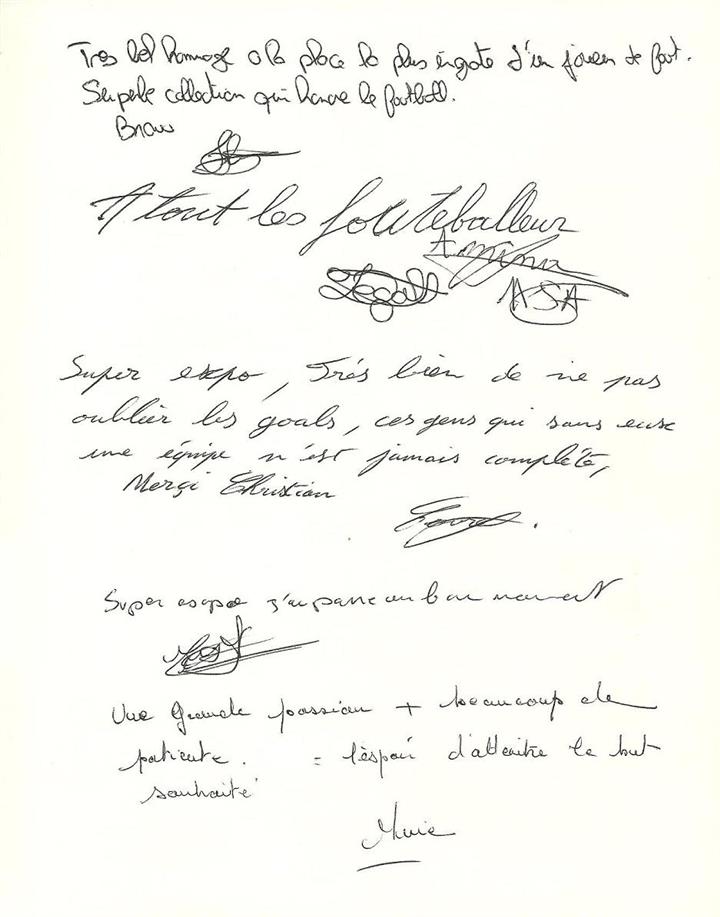 Très bel hommage a la place la plus ingrate d'un joueur de foot.
Superbe collection qui honore le football.
Bravo
A tout les fouteballeur
Amina
Legall
ASA
Super expo, Très bien de ne pas
oublier les goals, ces gens qui sans eux
une équipe n'est jamais complète,
Merçi Christian
Super expo j'ai passe un bon moment
Une Grande passion + beaucoup de
patiente. = l'éspoir d'atteitre le but
souhaité